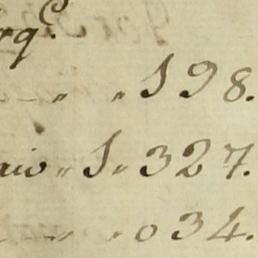 rqᵉ.
„ „ 198.
aio „ 1 „ 327.
„ „ 034.